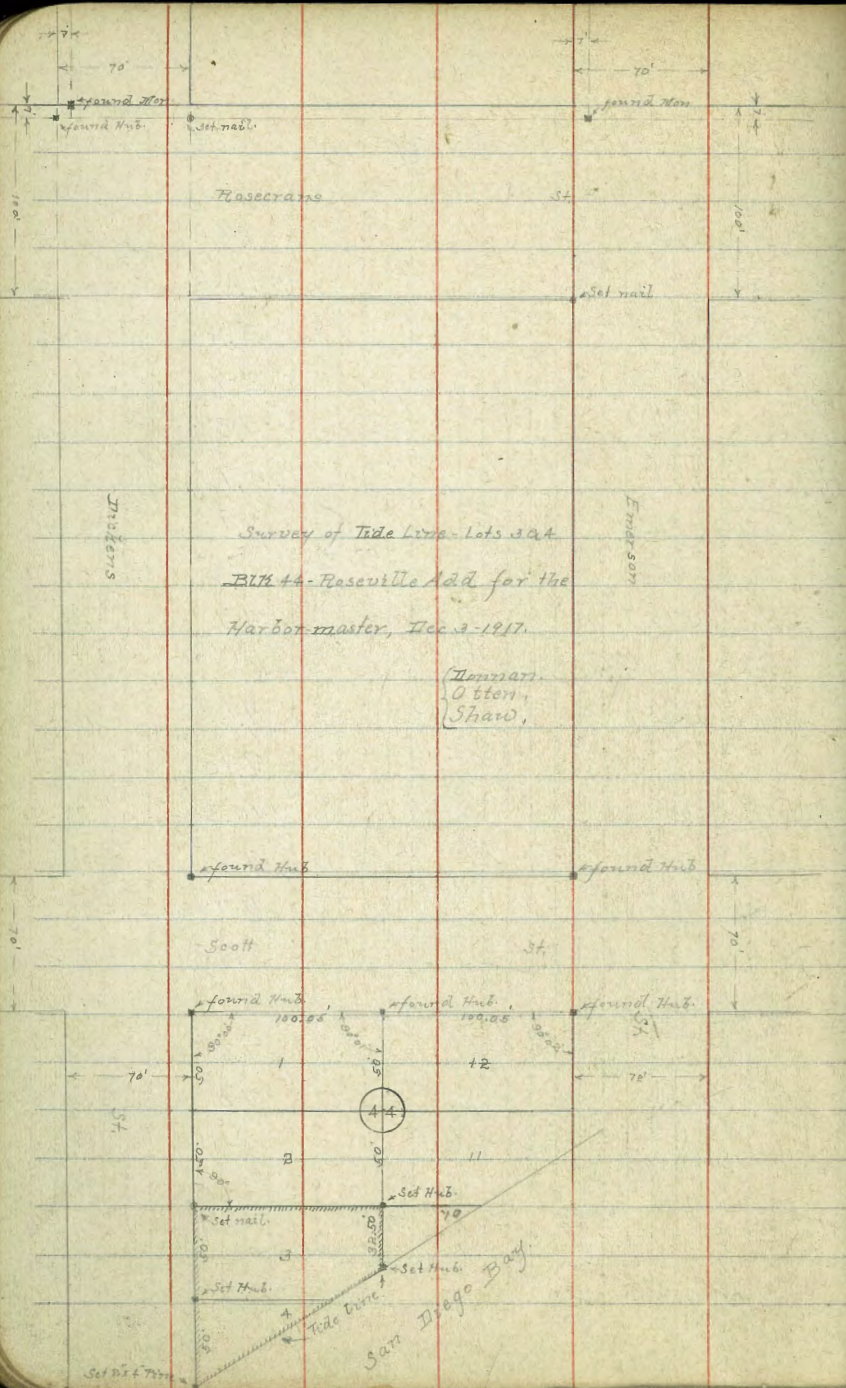 7'
7'
70'
70'
found Mon
found Mon
7'
7'
found Hub.
Set nail.
100'
100'
Rosecrans St.
Set nail
Dickens
Emerson
Survey of Tide Line - Lots 3 & 4
BLK 44 - Roseville Add for the
Harbor master, Dec 3 - 1917.
Donnan.
Otten.
Shaw.
found Hub
found Hub
70'
70'
Scott St.
found Hub.
found Hub.
found Hub.
100.05'
100.05'
90°00'
90°01'
90°02'
St.
50'
1
50'
12
70'
70'
44
St.
50'
2
50'
11
90°
Set Hub.
Set nail.
10
50'
3
32.50'
Set Hub.
Set Hub.
4
Tide Line.
San Diego Bay.
50'